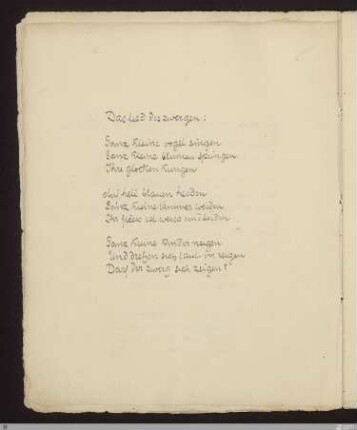 Das lied des zwergen:
Ganz kleine vögel singen
Ganz kleine blumen springen
Ihre glocken klingen
Auf hell blauen heiden
Ganz kleine lämmer weiden
Ihr fliess ist weiss und seiden
Ganz kleine kinder neigen
Und drehen sich laut im reigen
Darf der zwerg sich zeigen?